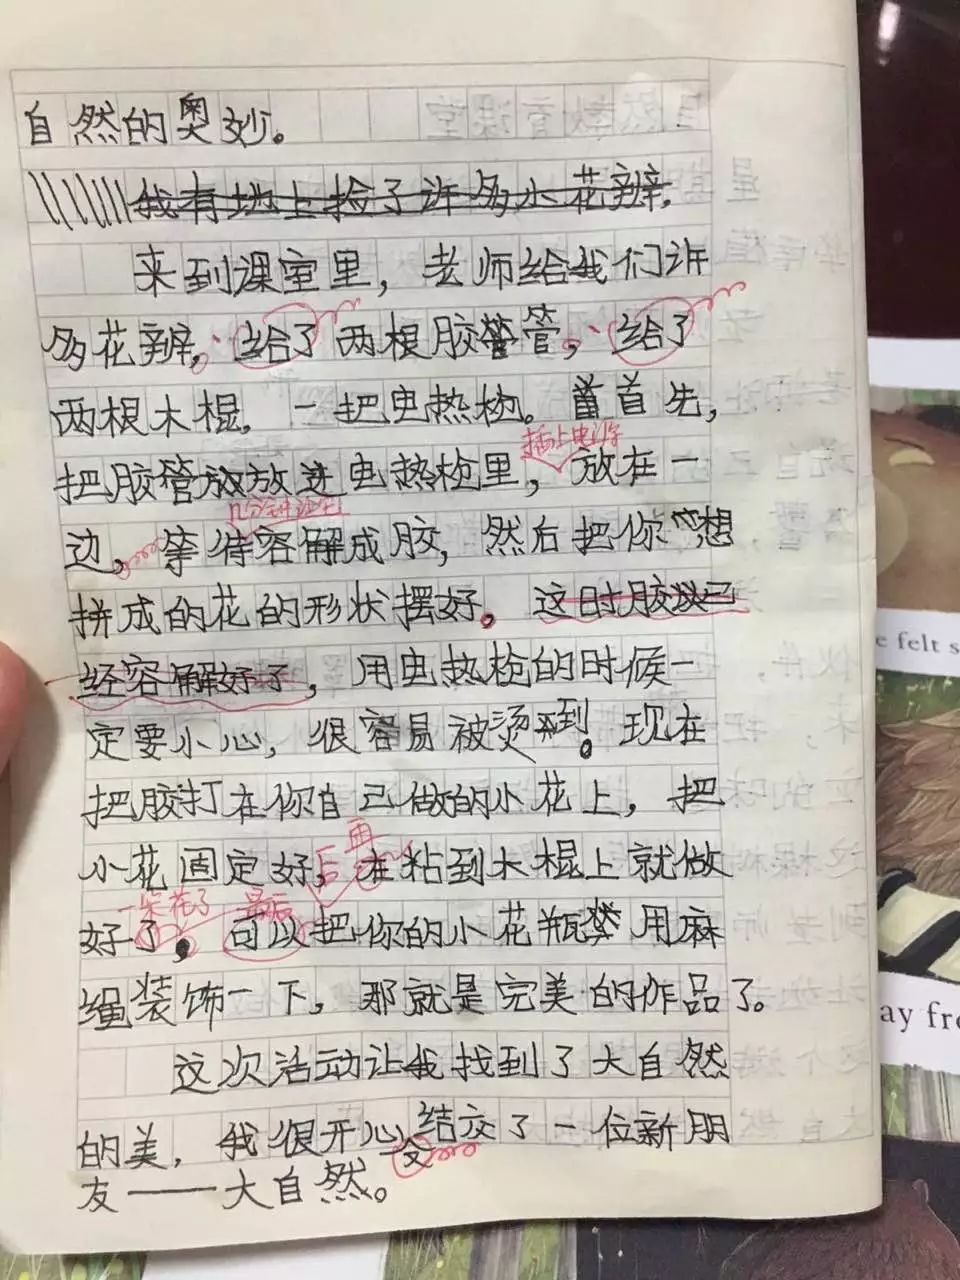 自然的奥妙。
我有地上捡了许多小花辨.
来到课室里，老师给我们许
多花辨，给了两根胶管，给了
两根木棍，一把虫热枪。首先，
插上电
把胶管放进虫热枪里，放在一
几分钟
边，等待容解成胶，然后把你想
拼成的花的形状摆好。这时胶以已
经容解好了，用虫热枪的时候一
定要小心，很容易被烫到。现在
把胶打在你自己做的小花上，把
后再
小花固定好，在粘到木棍上就做
一朵花了 最后
好了，可以把你的小花瓶用麻
绳装饰一下，那就是完美的作品了。
这次活动让我找到了大自然
的美，我很开心交结交了一位新朋
友——大自然。
e felt s
ay fro